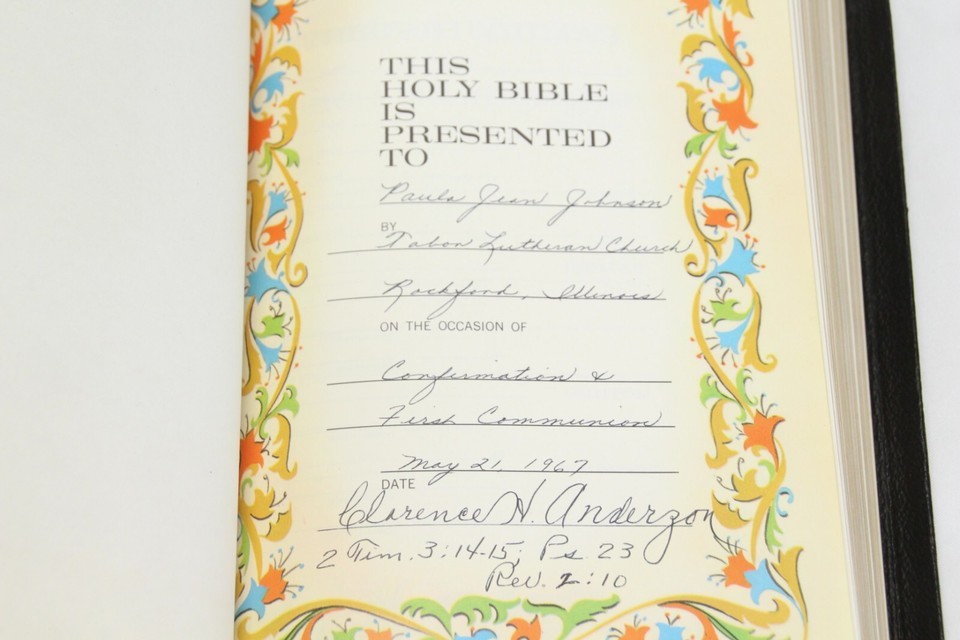 THIS
HOLY BIBLE
IS
PRESENTED
TO
Paula Jean Johnson
BY
Tabor Lutheran Church
Rockford, Illinois
ON THE OCCASION OF
Confirmation &
First Communion
May 21, 1967
DATE
Clarence H. Anderzon
2 Tim. 3:14-15; Ps. 23
Rev. 2:10